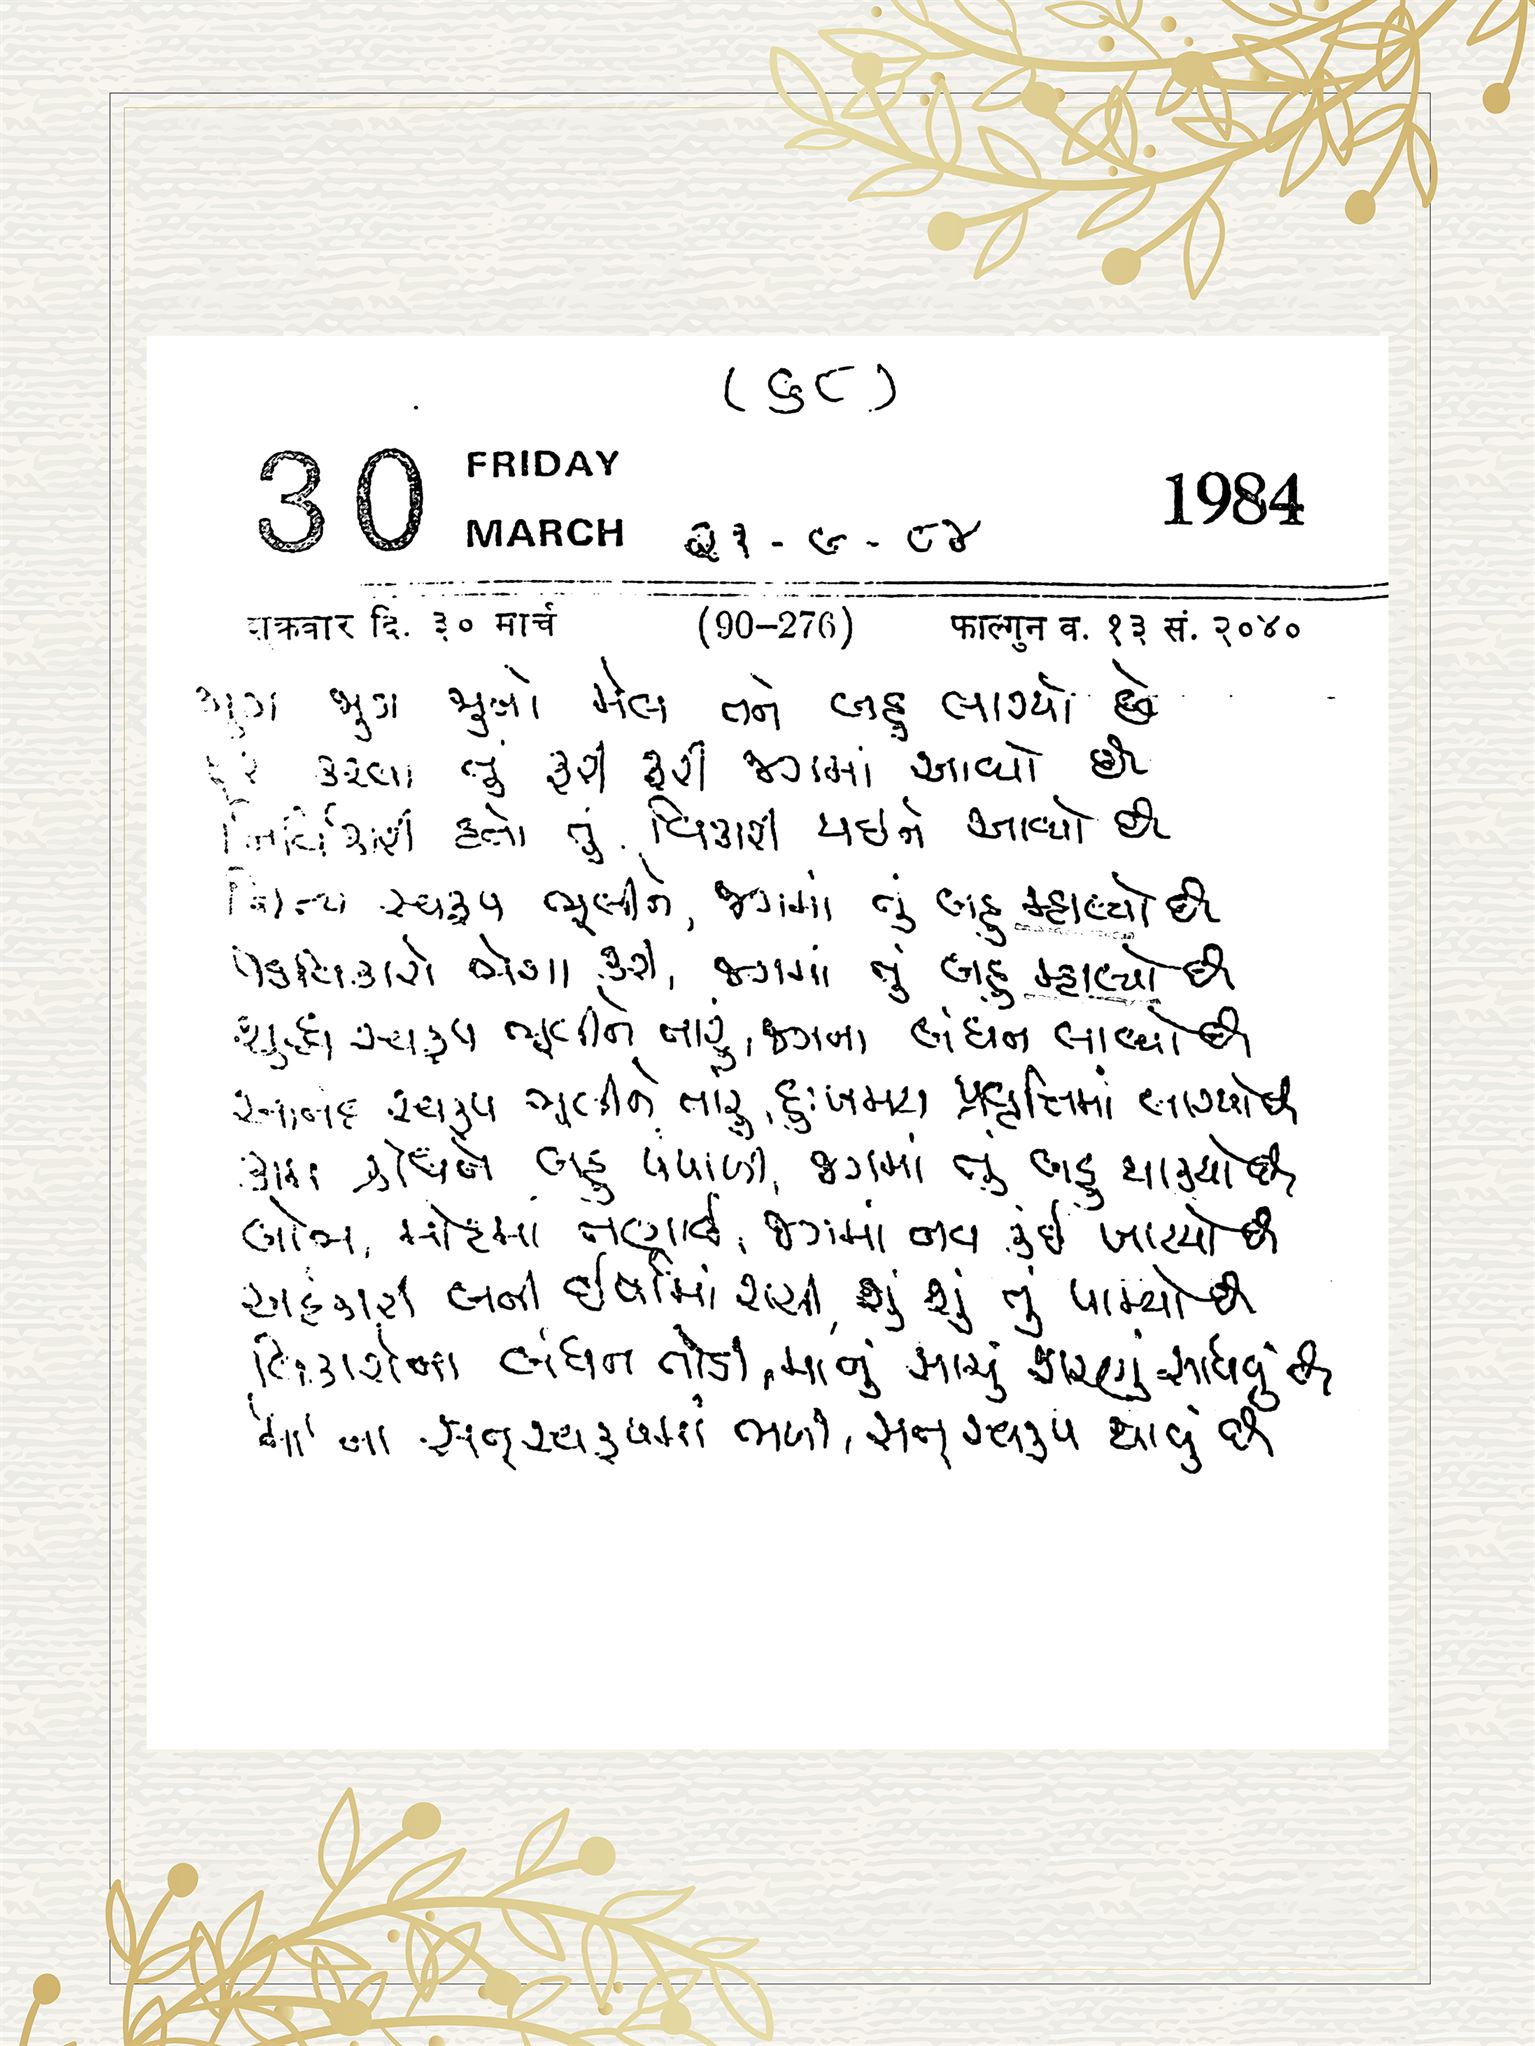 (૬૮)
30 FRIDAY
MARCH ૨૧-૭-૮૪ 1984
शुक्रवार दि. ३० मार्च (90–276) फाल्गुन व. १३ सं. २०४०
જુગ જુગ જુનો મેલ તને બહુ લાગ્યો છે
દૂર કરવા તું ફરી ફરી જગમાં આવ્યો છે
નિર્વિકારી હતો તું વિકારી થઇને આવ્યો છે
નિત્ય સ્વરૂપ ભૂલીને, જગમાં તું બહુ મ્હાલ્યો છે
વિકારો ભેગા કરી, જગમાં તું બહુ મ્હાલ્યો છે
શુદ્ધ સ્વરૂપ ભૂલીને તારું, જગના બંધન લાવ્યો છે
આનંદ સ્વરૂપ ભૂલીને તારું, દુઃખમય પ્રવૃત્તિમાં લાગ્યો છે
કામ ક્રોધને બહુ પંપાળી, જગમાં તું બહુ થાક્યો છે
લોભ, મોહમાં તણાઈ, જગમાં નવ કંઈ ખાટયો છે
અહંકારી બની ઈર્ષામાં રાચી, શું શું તું પામ્યો છે
વિકારોના બંધન તોડી, માનું સાચું શરણું સાધવું છે
'મા' ના સત્સ્વરૂપમાં ભળી, સત્ સ્વરૂપ થાવું છે